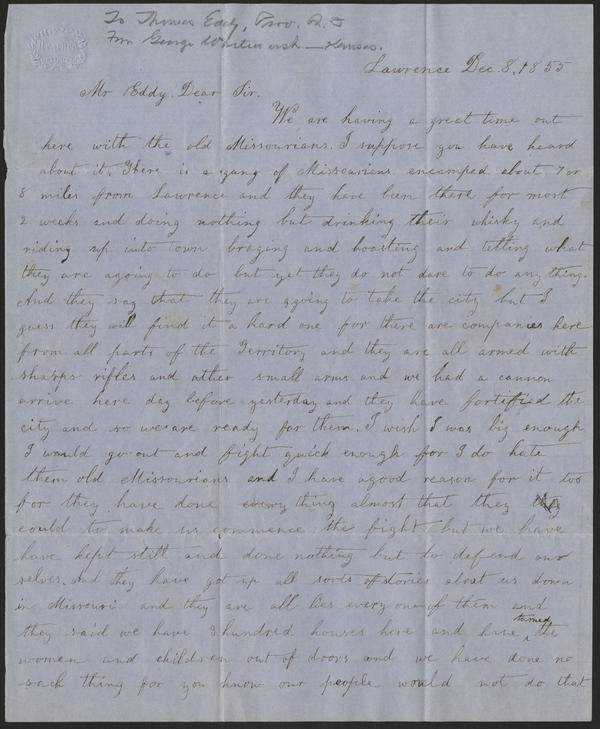 To Thomas Eddy, Prov. R. I
From George Whitier — Kansas.
Lawrence Dec. 8, 1855
Mr Eddy. Dear Sir.
We are having a great time out
here with the old Missourians. I suppose you have heard
about it. There is a gang of Missourians encamped about 7 or
8 miles from Lawrence and they have been there for most
2 weeks and doing nothing but drinking their whisky and
riding up into town braging and boasting and telling what
they are agoing to do but yet they do not dare to do any thing.
And they say that they are agoing to take the city but I
guess they will find it a hard one for there are companies here
from all parts of the Territory and they are all armed with
sharps rifles and other small arms and we had a cannon
arrive here day before yesterday and they have fortified the
city and so we are ready for them. I wish I was big enough
I would go out and fight quick enough for I do hate
them old Missourians and I have a good reason for it too
for they have done every thing almost that they
could to make us commence the fight but we have
have kept still and done nothing but to defend our
selves. And they have got up all sorts of stories about us down
in Missouri and they are all lies every one of them and
they said we have 3 hundred houses here and have turned the
women and children out of doors and we have done no
such thing for you know our people would not do that